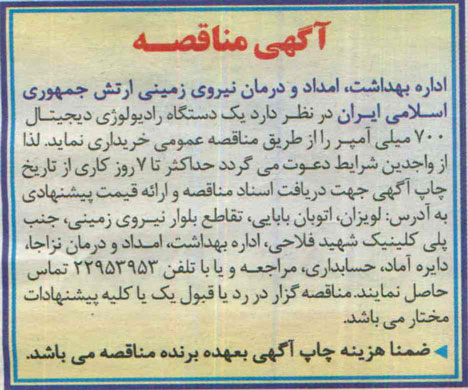 آگهی مناقصه
اداره بهداشت، امداد و درمان نیروی زمینی ارتش جمهوری
اسلامی ایران در نظر دارد یک دستگاه رادیولوژی دیجیتال
۷۰۰ میلی آمپر را از طریق مناقصه عمومی خریداری نماید. لذا
از واجدین شرایط دعوت می گردد حداکثر تا ۷ روز کاری از تاریخ
چاپ آگهی جهت دریافت اسناد مناقصه و ارائه قیمت پیشنهادی
به آدرس: لویزان، اتوبان بابایی، تقاطع بلوار نیروی زمینی، جنب
پلی کلینیک شهید فلاحی، اداره بهداشت، امداد و درمان نزاجا،
دایره آماد، حسابداری، مراجعه و یا با تلفن ۲۲۹۵۳۹۵۳ تماس
حاصل نمایند. مناقصه گزار در رد یا قبول یک یا کلیه پیشنهادات
مختار می باشد.
◄ ضمنا هزینه چاپ آگهی بعهده برنده مناقصه می باشد.